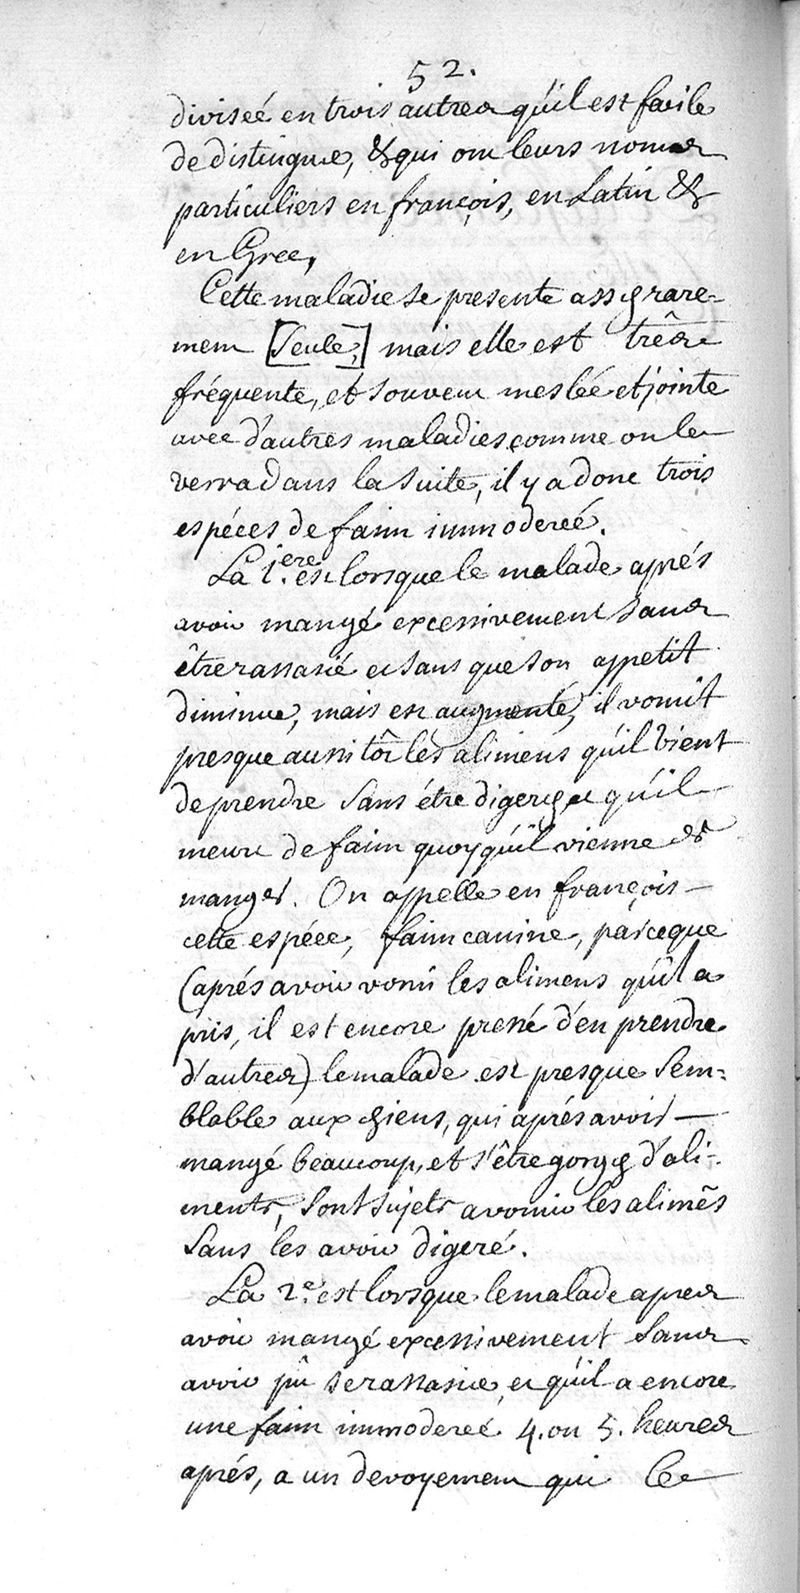 52.
diviseé en trois autres qu'il est facile
de distinguer, & qui ont leurs noms
particuliers en françois, en Latin &
en Grec,
Cette maladie se presente assez rare=
ment [seule,] mais elle est trés
fréquente, et souvent meslée et jointe
avec d'autres maladies comme on le
verra dans la suite, il y a donc trois
espéces de faim immodereé.
La 1.ere est lorsque le malade aprés
avoir mangé excessivement sans
être rassasié et sans que son appetit
diminue, mais est augmenté, il vomit
presque aussitôt les alimens qu'il vient
de prendre sans étre digerez et qu'il
meure de faim quoyqu'il vienne de
manger. On appelle en françois
cette espéce, faim canine, parceque
(aprés avoir vomi les alimens qu'il a
pris, il est encore pressé d'en prendre
d'autres) le malade est presque sem=
blable aux chiens, qui aprés avoir
mangé beaucoup, et s'être gorgez d'ali=
ments, sont sujets a vomir les alimẽs
sans les avoir digeré.
La 2.e est lorsque le malade apres
avoir mangé excessivement sans
avoir pû se rassasier, et qu'il a encore
une faim immodereé 4. ou 5. heures
aprés, a un devoyement qui le